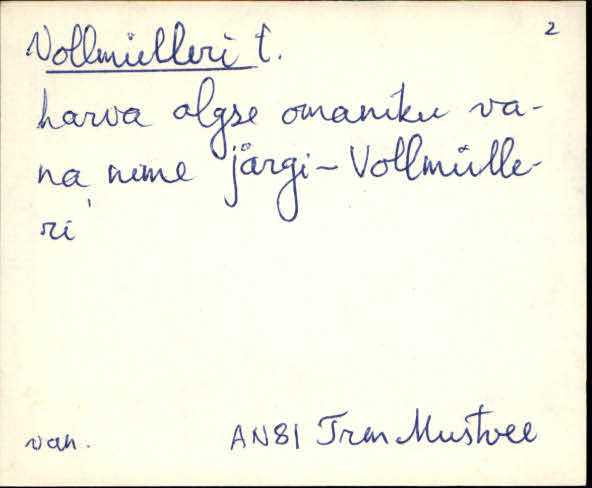 2
Vollmülleri t.
harva algse omaniku va-
na nime järgi - Vollmülle-
ri
van. AN81 Trm Mustvee